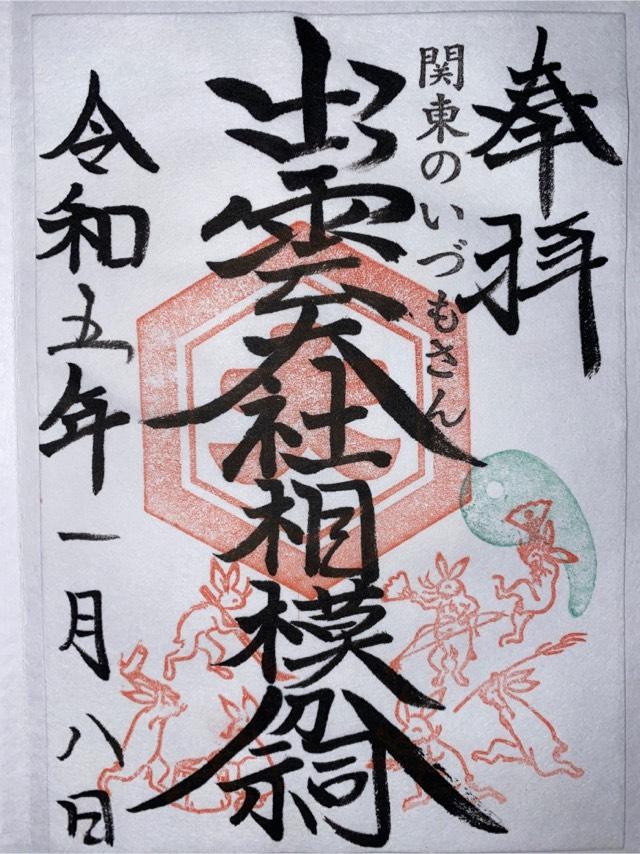 奉拝
関東のいづもさん
出雲大社相模分祠
令和五年一月八日